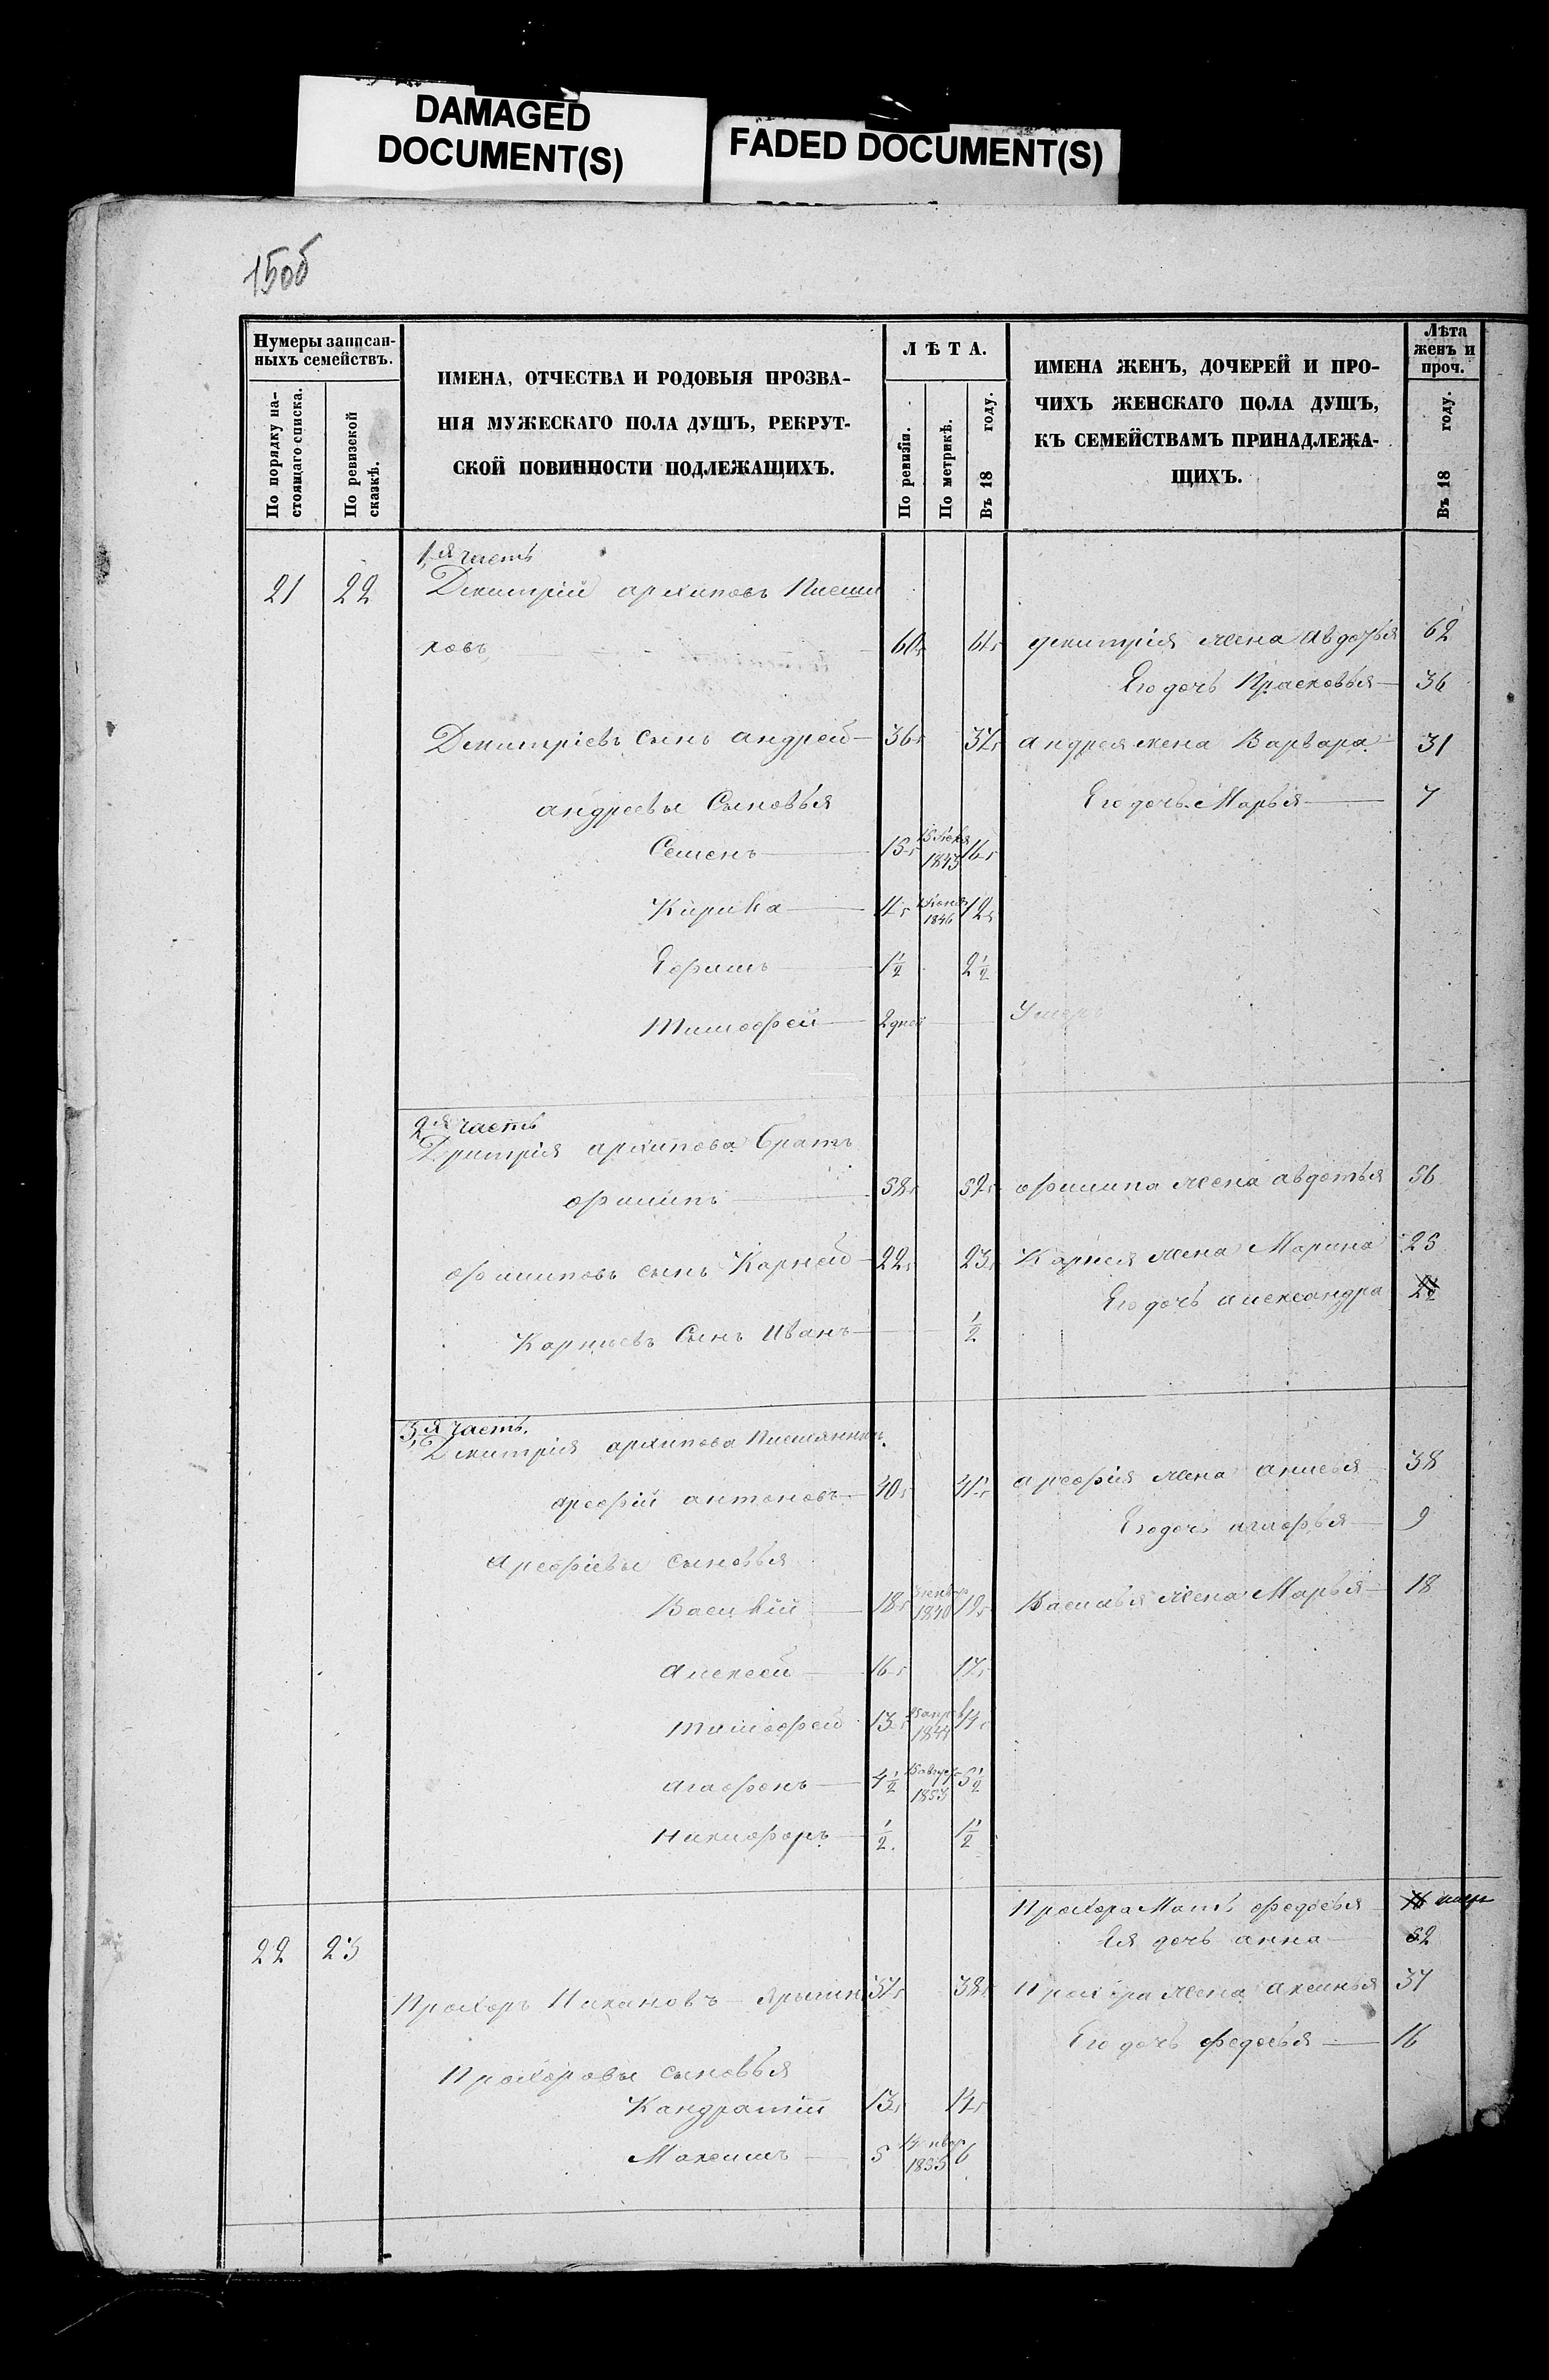 DAMAGED
DOCUMENT(S)
FADED DOCUMENT(S)
15об
Нумеры записан-
ныхъ семействъ.
По порядку на-
стоящаго списка.
По ревизской
сказкѣ.
ИМЕНА, ОТЧЕСТВА И РОДОВЫЯ ПРОЗВА-
НІЯ МУЖЕСКАГО ПОЛА ДУШЪ, РЕКРУТ-
СКОЙ ПОВИННОСТИ ПОДЛЕЖАЩИХЪ.
ЛѢТА.
По ревизіи.
По метрикѣ.
Въ 18 году.
ИМЕНА ЖЕНЪ, ДОЧЕРЕЙ И ПРО-
ЧИХЪ ЖЕНСКАГО ПОЛА ДУШЪ,
КЪ СЕМЕЙСТВАМЪ ПРИНАДЛЕЖА-
ЩИХЪ.
Лѣта
женъ и
проч.
Въ 18 году.
1я часть
21 22 Дмитрій архиповъ
ховъ 60 61 дмитрія жена Авдотья 62
Его дочь Прасковья 36
Дмитріевъ сынъ андрей 36 37 андрея жена Варвара 31
андреевы Сыновья Его дочь Марья 7
Семенъ 15 1843 16
Кирила 11 1846 12
Ефимъ 1½ 2½
Тимофей 2 дней Умеръ
2я часть
Дмитрія архипова братъ
филипъ 58 59 филипа жена авдотья 56
филиповъ сынъ Карней 22 23 Карнея жена Марина 25
Его дочь александра
Карнѣевъ Сынъ Иванъ ½
3я часть.
Дмитрія архипова Племянникъ
арефій антоновъ 40 41 арефія жена анисья 38
Его дочь агафья 9
Арефіевы сыновья
Василій 18 1840 19 Василья жена Марья 18
Алексей 16 17
тимофей 13 1844 14
агафонъ 4½ 1853 5½
никифоръ ½ 1½
Прохора Мать федосья
22 23 Ея дочь анна 52
Прохоръ 37 38 Прохора жена аксинья 37
Его дочь федосья 16
Прохоровы сыновья
Кандратій 13 14
Максимъ 5 6